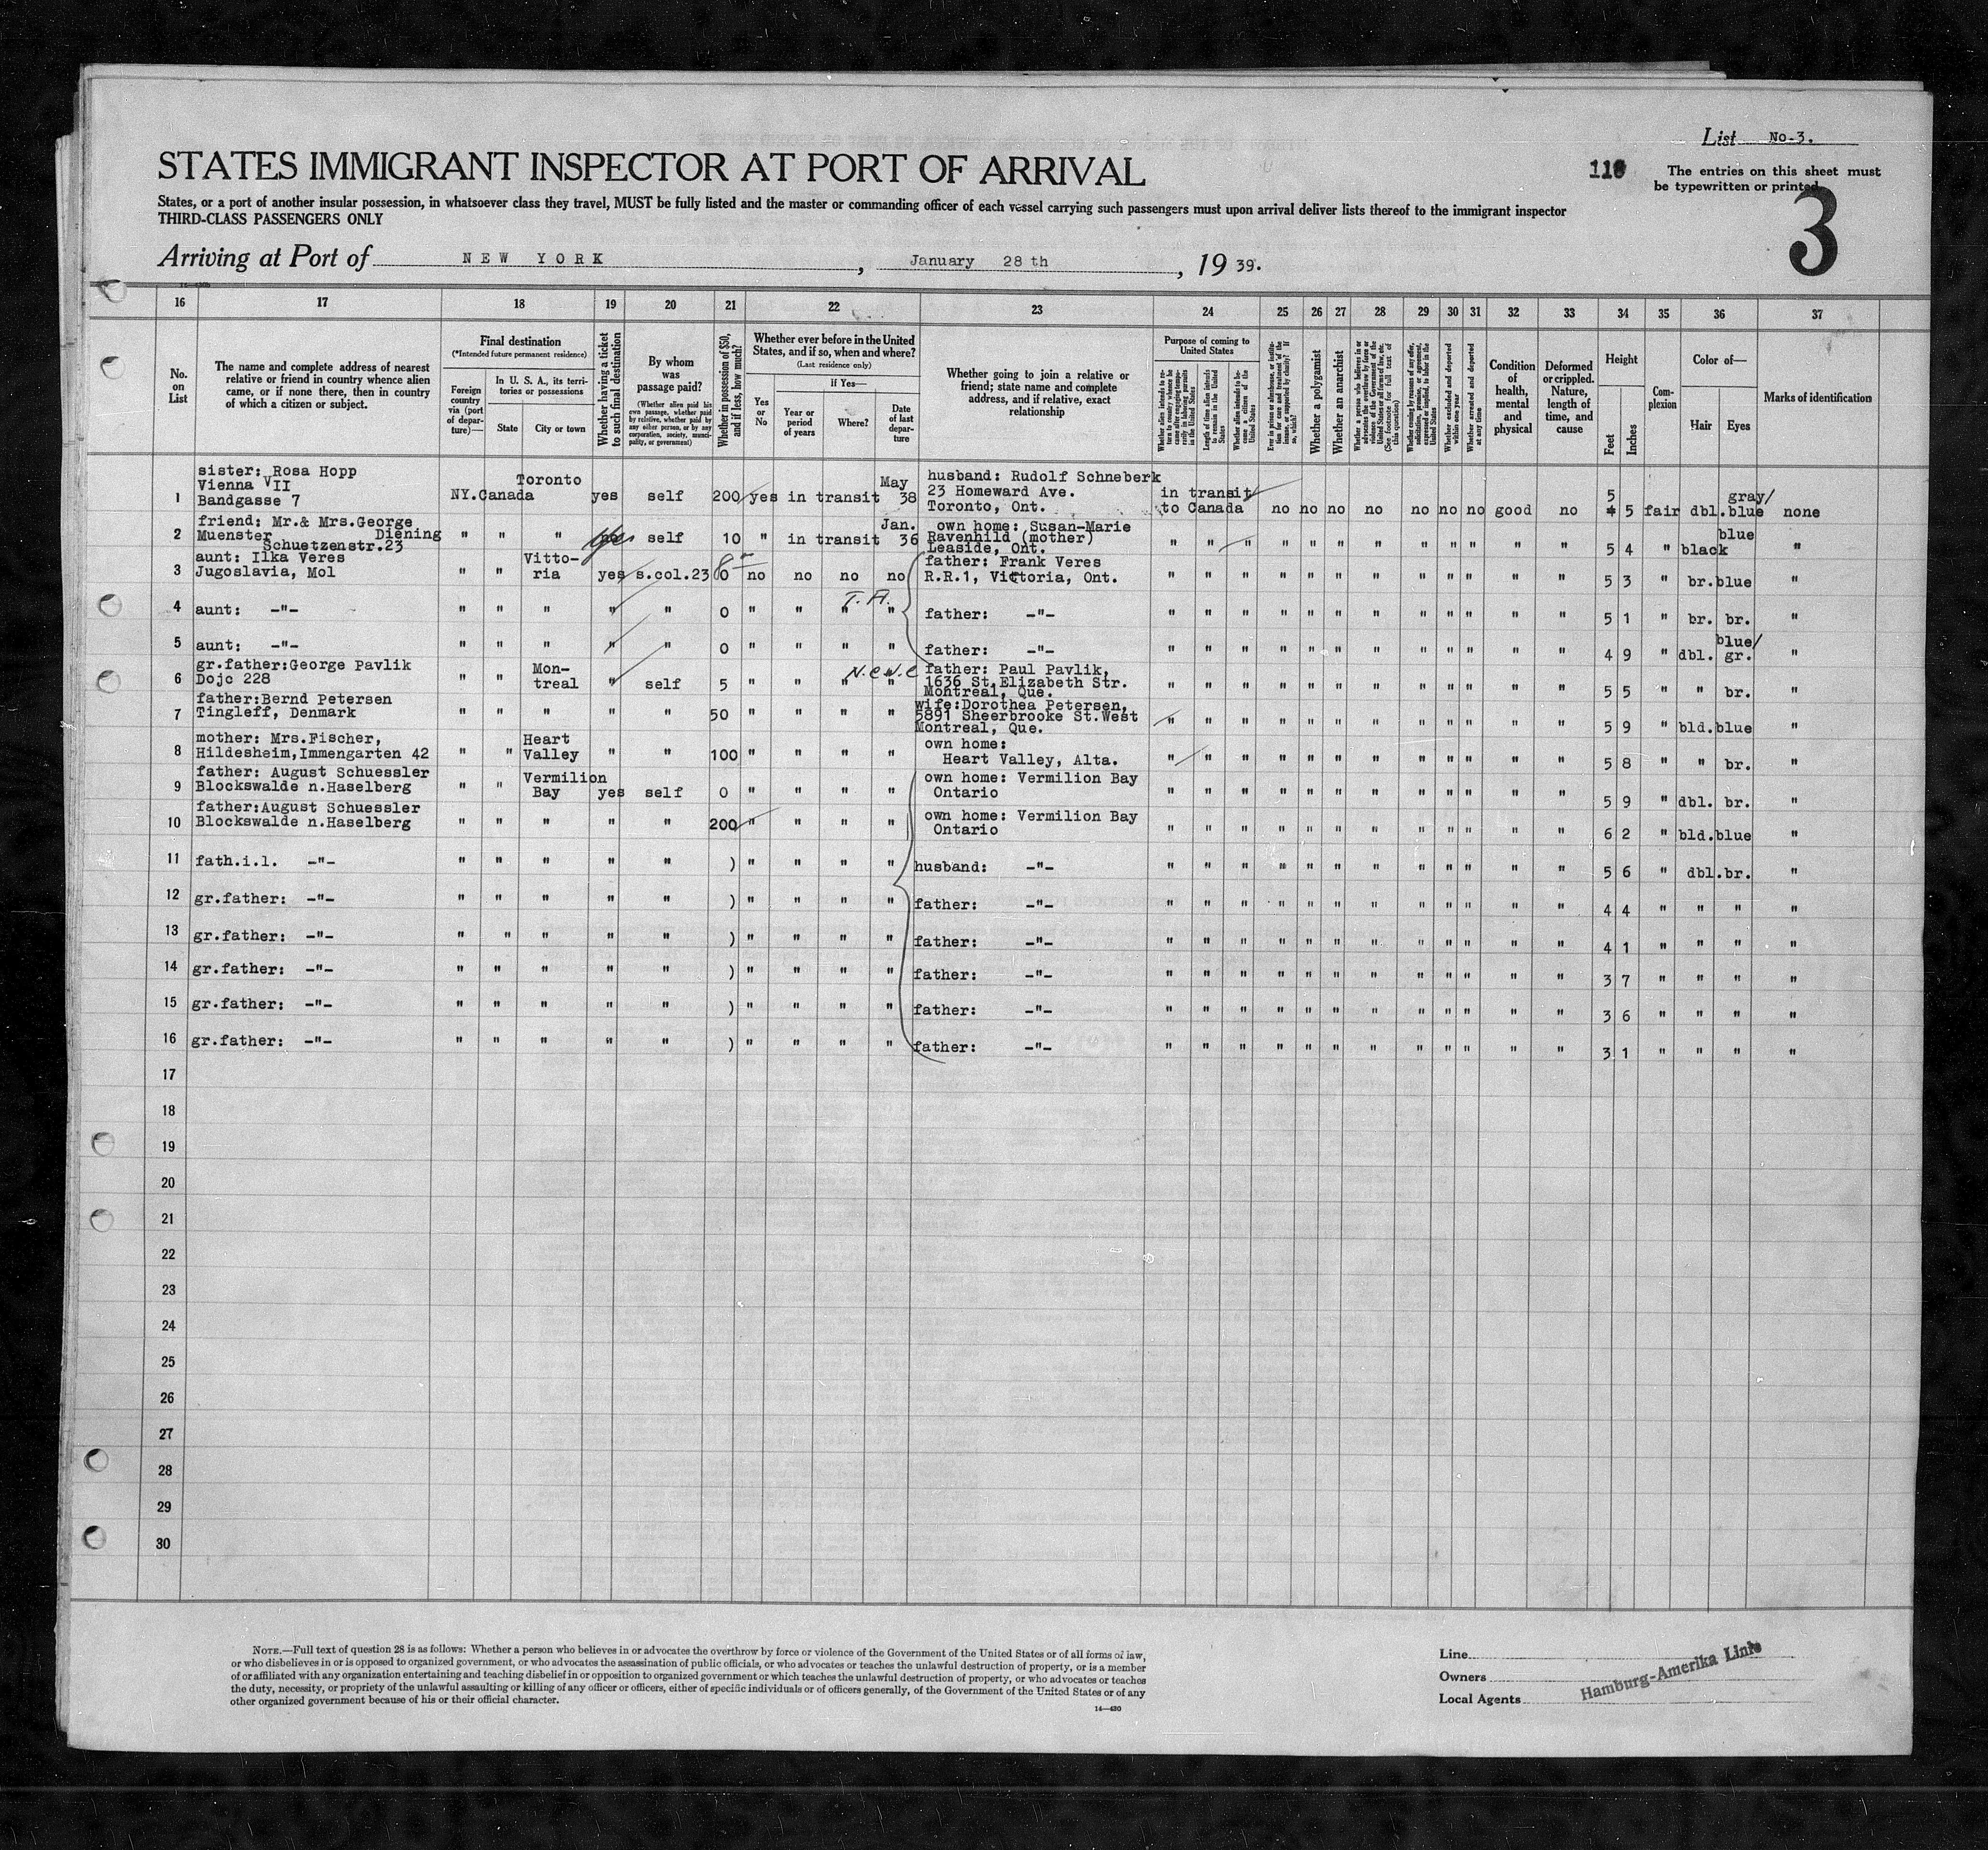 List No-3.
STATES IMMIGRANT INSPECTOR AT PORT OF ARRIVAL
The entries on this sheet must be typewritten or printed
States, or a port of another insular possession, in whatsoever class they travel, MUST be fully listed and the master or commanding officer of each vessel carrying such passengers must upon arrival deliver lists thereof to the immigrant inspector
THIRD-CLASS PASSENGERS ONLY
3
Arriving at Port of NEW YORK, January 28th, 1939.
16 17 18 19 20 21 22 23 24 25 26 27 28 29 30 31 32 33 34 35 36 37
No. on List
The name and complete address of nearest relative or friend in country whence alien came, or if none there, then in country of which a citizen or subject.
Final destination
(*Intended future permanent residence)
Foreign country via (port of departure)—
In U. S. A., its territories or possessions
State
City or town
Whether having a ticket to such final destination
By whom was passage paid?
(Whether alien paid his own passage, whether paid by relative, whether paid by any other person, or by any corporation, society, municipality, or government)
Whether in possession of $50, and if less, how much?
Whether ever before in the United States, and if so, when and where?
(Last residence only)
Yes or No
If Yes—
Year or period of years
Where?
Date of last departure
Whether going to join a relative or friend; state name and complete address, and if relative, exact relationship
Purpose of coming to United States
Length of time alien intends to remain in the United States
Whether alien intends to become a citizen of the United States
Whether a polygamist
Whether an anarchist
(See footnote for full text of this question)
Whether excluded and deported within one year
Whether arrested and deported at any time
Condition of health, mental and physical
Deformed or crippled. Nature, length of time, and cause
Height
Feet
Inches
Complexion
Color of—
Hair
Eyes
Marks of identification
1 sister: Rosa Hopp Vienna VII Bandgasse 7 NY. Canada Toronto yes self 200 yes in transit May 38 husband: Rudolf Schneberk 23 Homeward Ave. Toronto, Ont. in transit to Canada no no no no no no no good no 5 5 fair dbl. gray/blue none
2 friend: Mr.& Mrs.George Diening Muenster Schuetzenstr.23 " " " yes self 10 " in transit Jan. 36 own home: Susan-Marie Ravenhild (mother) Leaside, Ont. " " " " " " " " " " " " 5 4 " black blue "
3 aunt: Ilka Veres Jugoslavia, Mol " " Vittoria yes s.col.23 0 no no no no father: Frank Veres R.R.1, Victoria, Ont. " " " " " " " " " " " " 5 3 " br. blue "
4 aunt: -"- " " " " " 0 " " " " T.A. father: -"- " " " " " " " " " " " " 5 1 " br. br. "
5 aunt: -"- " " " " " 0 " " " " father: -"- " " " " " " " " " " " " 4 9 " dbl. blue/gr. "
6 gr.father:George Pavlik Dojc 228 " " Montreal " self 5 " " " " father: Paul Pavlik, 1636 St.Elizabeth Str. Montreal, Que. " " " " " " " " " " " " 5 5 " " br. "
7 father:Bernd Petersen Tingleff, Denmark " " " " " 50 " " " " wife:Dorothea Petersen, 5891 Sheerbrooke St.West Montreal, Que. " " " " " " " " " " " " 5 9 " bld. blue "
8 mother: Mrs.Fischer, Hildesheim,Immengarten 42 " " Heart Valley " " 100 " " " " own home: Heart Valley, Alta. " " " " " " " " " " " " 5 8 " " br. "
9 father: August Schuessler Blockswalde n.Haselberg " " Vermilion Bay yes self 0 " " " " own home: Vermilion Bay Ontario " " " " " " " " " " " " 5 9 " dbl. br. "
10 father:August Schuessler Blockswalde n.Haselberg " " " " " 200 " " " " own home: Vermilion Bay Ontario " " " " " " " " " " " " 6 2 " bld. blue "
11 fath.i.l. -"- " " " " " ) " " " " husband: -"- " " " " " " " " " " " " 5 6 " dbl. br. "
12 gr.father: -"- " " " " " ) " " " " father: -"- " " " " " " " " " " " " 4 4 " " " "
13 gr.father: -"- " " " " " ) " " " " father: -"- " " " " " " " " " " " " 4 1 " " " "
14 gr.father: -"- " " " " " ) " " " " father: -"- " " " " " " " " " " " " 3 7 " " " "
15 gr.father: -"- " " " " " ) " " " " father: -"- " " " " " " " " " " " " 3 6 " " " "
16 gr.father: -"- " " " " " ) " " " " father: -"- " " " " " " " " " " " " 3 1 " " " "
17
18
19
20
21
22
23
24
25
26
27
28
29
30
NOTE.—Full text of question 28 is as follows: Whether a person who believes in or advocates the overthrow by force or violence of the Government of the United States or of all forms of law,
or who disbelieves in or is opposed to organized government, or who advocates the assassination of public officials, or who advocates or teaches the unlawful destruction of property, or is a member
of or affiliated with any organization entertaining and teaching disbelief in or opposition to organized government or which teaches the unlawful destruction of property, or who advocates or teaches
the duty, necessity, or propriety of the unlawful assaulting or killing of any officer or officers, either of specific individuals or of officers generally, of the Government of the United States or of any
other organized government because of his or their official character.
14—430
Line
Owners
Local Agents
Hamburg-Amerika Linie